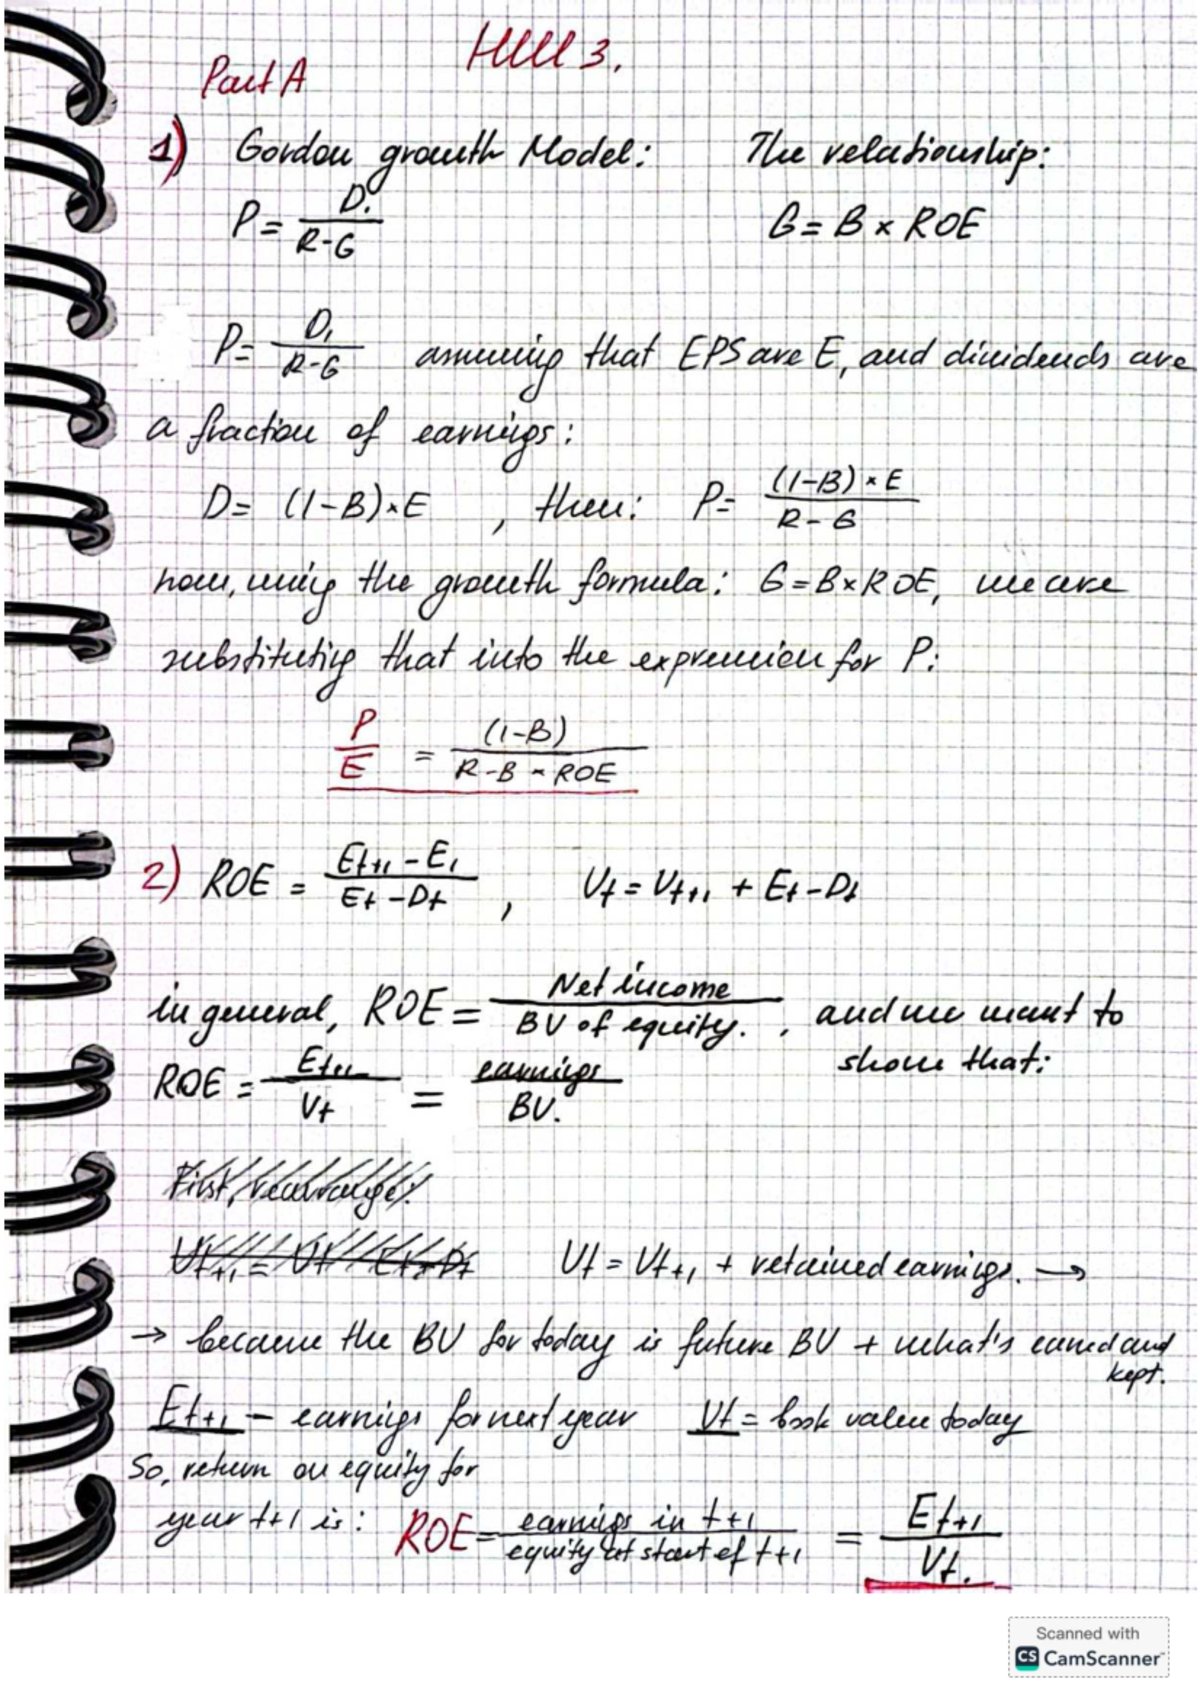 HW 3.
Part A
1) Gordon growth Model: The relationship:
P = D₁ / R-G G = B × ROE
P = D₁ / R-G assuming that EPS are E, and dividends are
a fraction of earnings:
D = (1-B)×E , then: P = (1-B)×E / R-G
now, using the growth formula: G = B×ROE, we are
substituting that into the expression for P:
P/E = (1-B) / R-B × ROE
2) ROE = Et+1 - E1 / Et - Dt , Vt = Vt+1 + Et - Dt
in general, ROE = Net income / BV of equity. , and we want to
show that:
ROE = Et+1 / Vt = earnings / BV.
First, rearrange:
Vt+1 = Vt Et - Dt Vt = Vt+1 + retained earnings. →
→ because the BV for today is future BV + what's earned and
kept.
Et+1 – earnings for next year Vt = book value today
So, return on equity for
year t+1 is: ROE = earnings in t+1 / equity at start of t+1 = Et+1 / Vt.
Scanned with
CS CamScanner